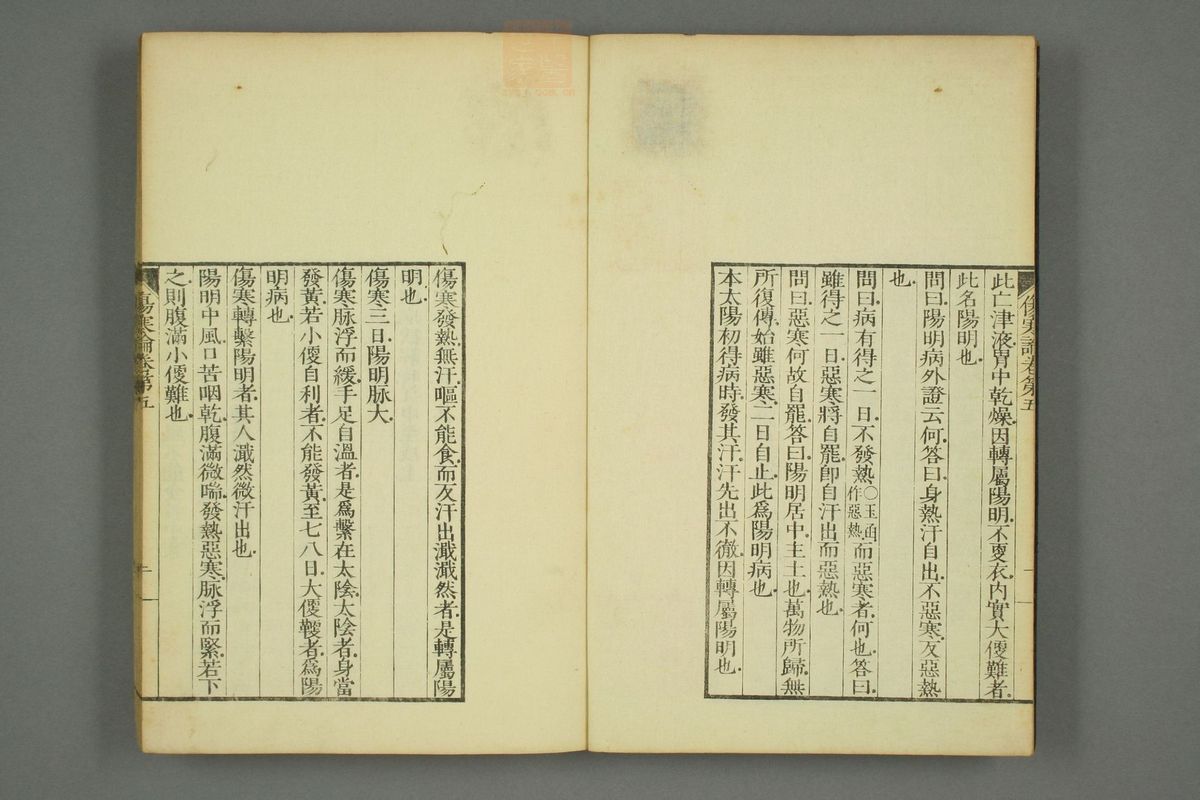 此亡津液胃中乾燥因轉屬陽明不更衣內實大便難者
此名陽明也
問曰陽明病外證云何答曰身熱汗自出不惡寒反惡熱
也
問曰病有得之一日不發熱○玉函作惡熱而惡寒者何也答曰
雖得之一日惡寒將自罷卽自汗出而惡熱也
問曰惡寒何故自罷答曰陽明居中主土也萬物所歸無
所復傳始雖惡寒二日自止此爲陽明病也
本太陽初得病時發其汗汗先出不徹因轉屬陽明也
傷寒發熱無汗嘔不能食而反汗出濈濈然者是轉屬陽
明也
傷寒三日陽明脉大
傷寒脉浮而緩手足自溫者是爲繫在太陰太陰者身當
發黃若小便自利者不能發黃至七八日大便鞕者爲陽
明病也
傷寒轉繫陽明者其人濈然微汗出也
陽明中風口苦咽乾腹滿微喘發熱惡寒脉浮而緊若下
之則腹滿小便難也
傷寒論卷第五